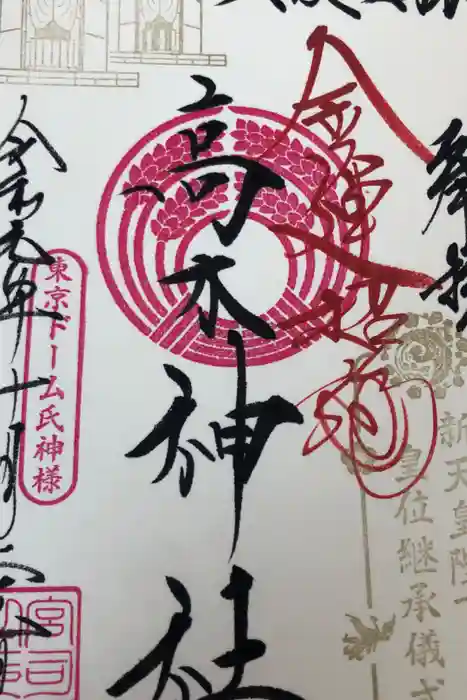 奉拝
新天皇陛下
皇位継承儀式
金運招福
高木神社
東京ドーム氏神様
令和元年十月
宮司